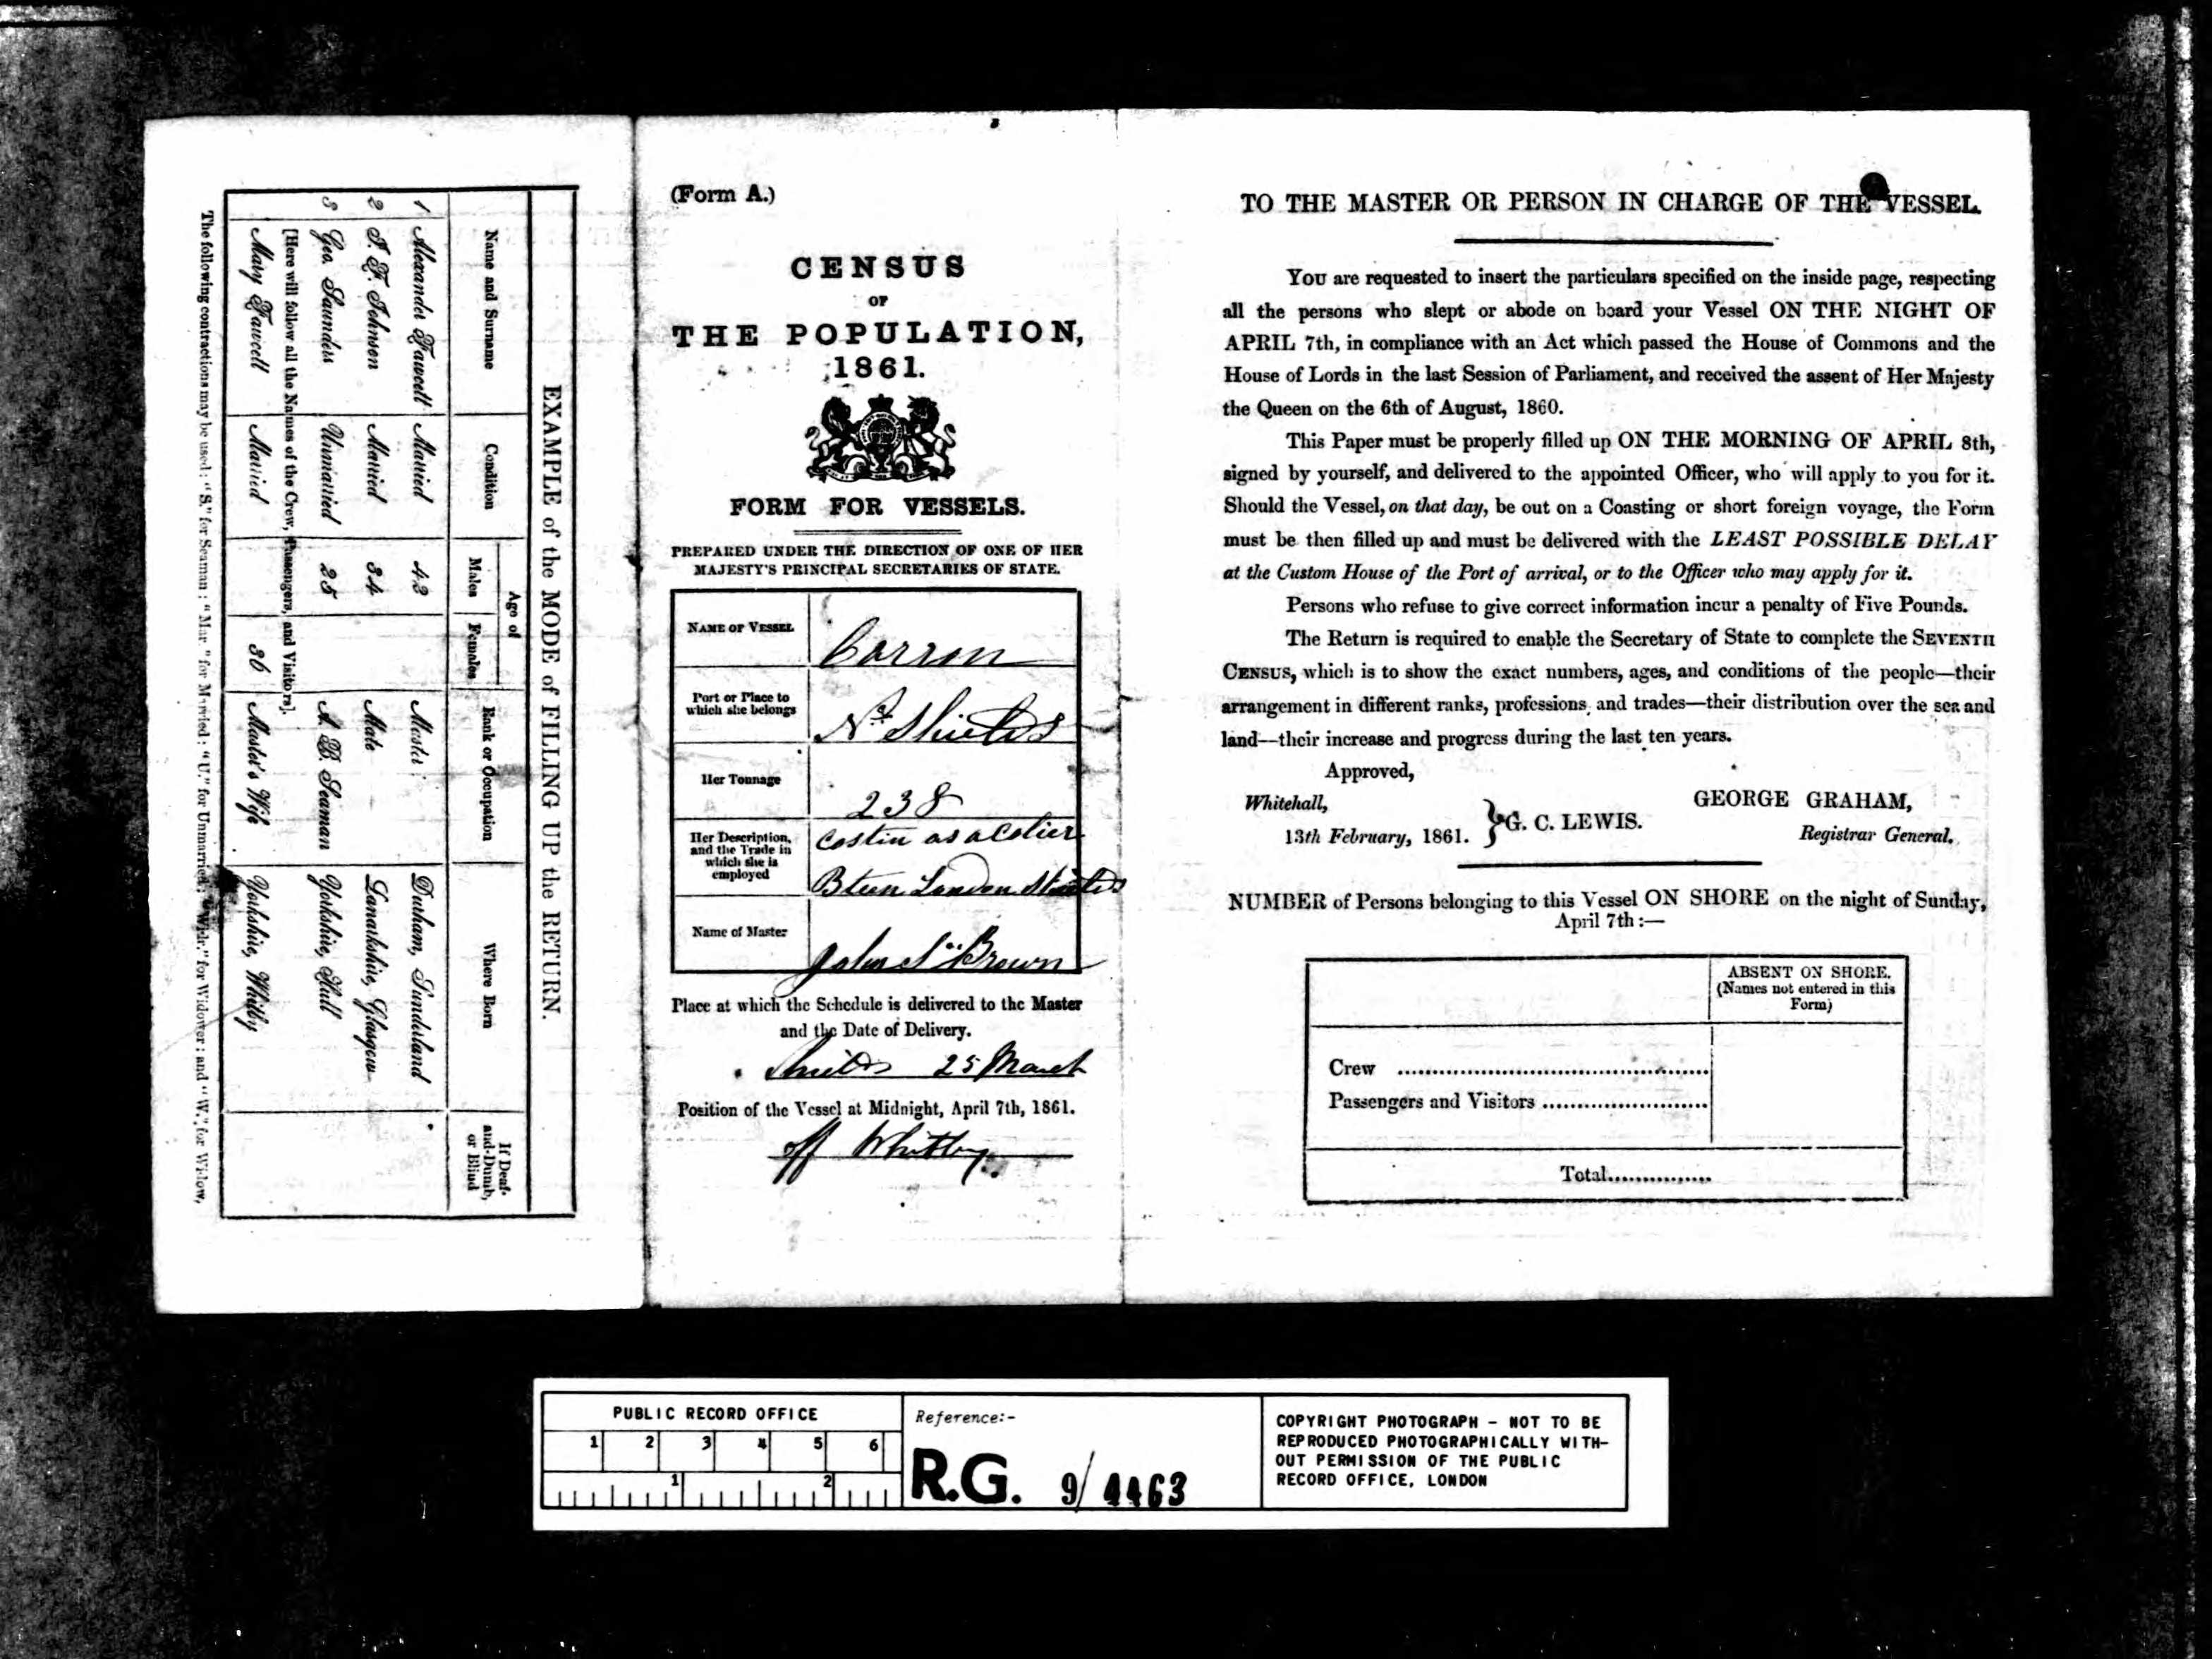 EXAMPLE of the MODE of FILLING UP the RETURN.
Name and Surname
Condition
Age of
Males
Females
Rank or Occupation
Where Born
If Deaf-
and-Dumb,
or Blind
1 Alexander Fawcett Married 42 Master Durham, Sunderland
2 J. F. Johnson Married 34 Mate Lanarkshire, Glasgow
3 Geo. Saunders Unmarried 25 A. B. Seaman Yorkshire, Hull
[Here will follow all the Names of the Crew, Passengers, and Visitors].
Mary Fawcett Married 36 Master's Wife Yorkshire, Whitby
The following contractions may be used: "S." for Seaman: "Mar" for Married: "U." for Unmarried: "Widr." for Widower: and "W." for Widow,
(Form A.)
CENSUS
OF
THE POPULATION,
1861.
FORM FOR VESSELS.
PREPARED UNDER THE DIRECTION OF ONE OF HER
MAJESTY'S PRINCIPAL SECRETARIES OF STATE.
NAME OF VESSEL
Carron
Port or Place to
which she belongs
No Shields
Her Tonnage
238
Her Description,
and the Trade in
which she is
employed
Costin as a Colier
Bteen London Shields
Name of Master
John Brown
Place at which the Schedule is delivered to the Master
and the Date of Delivery.
Shields 25 March
Position of the Vessel at Midnight, April 7th, 1861.
off Whitby
TO THE MASTER OR PERSON IN CHARGE OF THE VESSEL.
YOU are requested to insert the particulars specified on the inside page, respecting
all the persons who slept or abode on board your Vessel ON THE NIGHT OF
APRIL 7th, in compliance with an Act which passed the House of Commons and the
House of Lords in the last Session of Parliament, and received the assent of Her Majesty
the Queen on the 6th of August, 1860.
This Paper must be properly filled up ON THE MORNING OF APRIL 8th,
signed by yourself, and delivered to the appointed Officer, who will apply to you for it.
Should the Vessel, on that day, be out on a Coasting or short foreign voyage, the Form
must be then filled up and must be delivered with the LEAST POSSIBLE DELAY
at the Custom House of the Port of arrival, or to the Officer who may apply for it.
Persons who refuse to give correct information incur a penalty of Five Pounds.
The Return is required to enable the Secretary of State to complete the SEVENTH
CENSUS, which is to show the exact numbers, ages, and conditions of the people—their
arrangement in different ranks, professions and trades—their distribution over the sea and
land—their increase and progress during the last ten years.
Approved,
Whitehall,
13th February, 1861. } G. C. LEWIS.
GEORGE GRAHAM,
Registrar General.
NUMBER of Persons belonging to this Vessel ON SHORE on the night of Sunday,
April 7th:—
ABSENT ON SHORE.
(Names not entered in this
Form)
Crew
Passengers and Visitors
Total
PUBLIC RECORD OFFICE
1 2 3 4 5 6
1 2
Reference:-
R.G. 9/4463
COPYRIGHT PHOTOGRAPH - NOT TO BE
REPRODUCED PHOTOGRAPHICALLY WITH-
OUT PERMISSION OF THE PUBLIC
RECORD OFFICE, LONDON